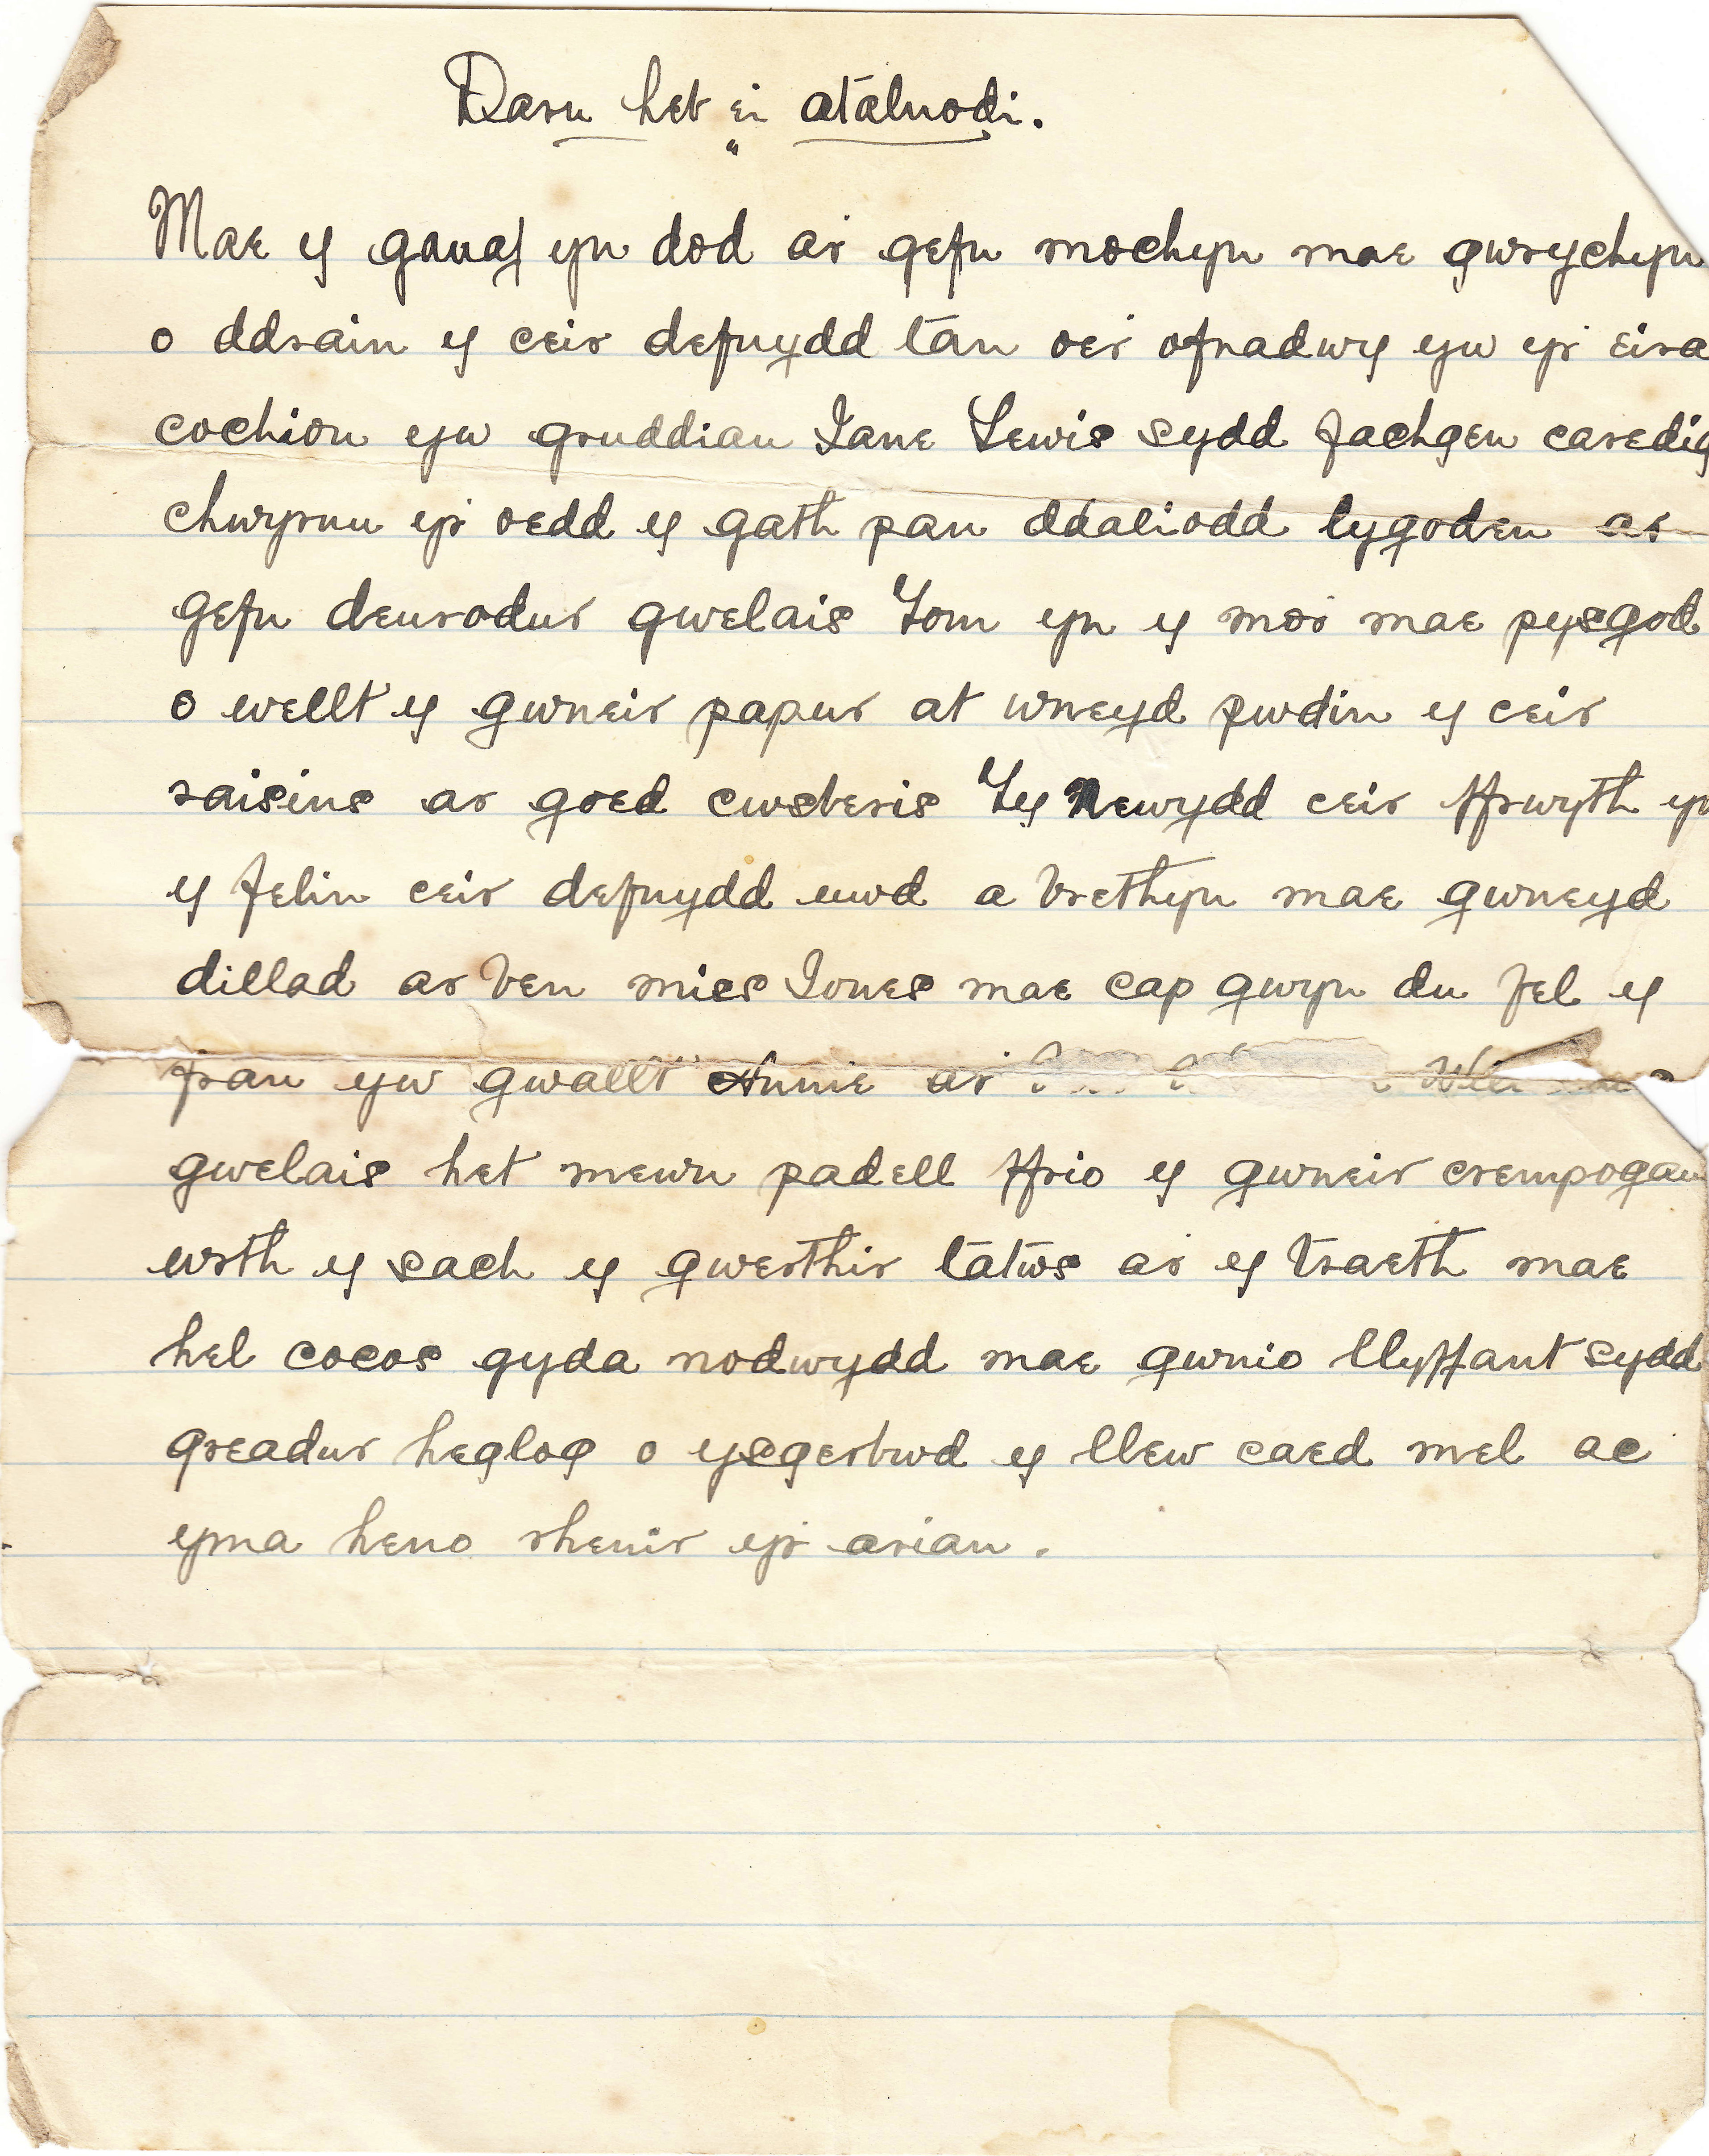 Darn heb ei atalnodi.
Mae y gauaf yn dod ar gefn mochyn mae gwrychyn
o ddrain y ceir defnydd tan oer ofnadwy yw yr eira
cochion yw gruddiau Jane Lewis sydd fachgen caredig
chwyrnu yr oedd y gath pan ddaliodd lygoden ar
gefn deurodur gwelais Tom yn y mor mae pysgod
o wellt y gwneir papur at wneyd pwdin y ceir
raisins ar goed cwsberis Ty Newydd ceir ffrwyth yn
y felin ceir defnydd uwd a brethyn mae gwneyd
dillad ar ben miss Jones mae cap gwyn du fel y
fran yw gwallt Annie ar
gwelais het mewn padell ffrio y gwneir crempogau
wrth y sach y gwerthir tatws ar y traeth mae
hel cocos gyda nodwydd mae gwnio llyffant sydd
greadur heglog o ysgerbwd y llew caed mel ac
yma heno rhenir yr arian.